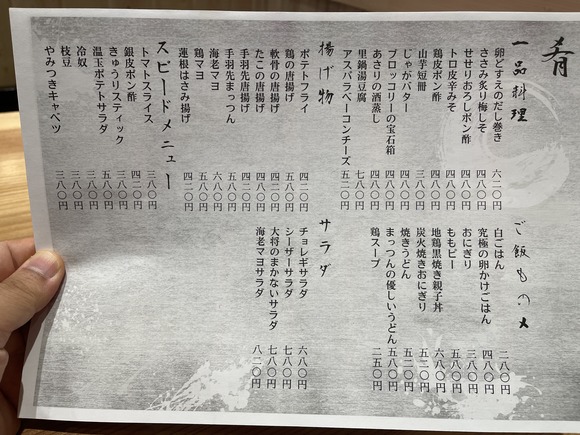 肴
一品料理
卵どすえのだし巻き 六二〇円
ささみ炙り梅しそ 四八〇円
せせりおろしポン酢 四八〇円
トロ皮辛みそ 四八〇円
鶏皮ポン酢 四八〇円
山芋短冊 三八〇円
じゃがバター 四八〇円
ブロッコリーの宝石箱 四八〇円
あさりの酒蒸し 四八〇円
里鍋湯豆腐 七八〇円
アスパラベーコンチーズ 五二〇円
揚げ物
ポテトフライ 四二〇円
鶏の唐揚げ 五八〇円
軟骨の唐揚げ 四二〇円
たこの唐揚げ 四八〇円
手羽先唐揚げ 四二〇円
手羽先まっつん 五八〇円
海老マヨ 六八〇円
鶏マヨ 五八〇円
蓮根はさみ揚げ 四二〇円
スピードメニュー
トマトスライス 三八〇円
銀皮ポン酢 四二〇円
きゅうりスティック 三八〇円
温玉ポテトサラダ 五八〇円
冷奴 三八〇円
枝豆 三八〇円
やみつきキャベツ 三八〇円
ご飯もの〆
白ごはん 二八〇円
究極の卵かけごはん 四八〇円
おにぎり 三八〇円
ももピー 五八〇円
地鶏黒焼き親子丼 六八〇円
炭火焼きおにぎり 五二〇円
焼きうどん 五二〇円
まっつんの優しいうどん 五八〇円
鶏スープ 二五〇円
サラダ
チョレギサラダ 六八〇円
シーザーサラダ 七八〇円
大将のまかないサラダ 七八〇円
海老マヨサラダ 八二〇円